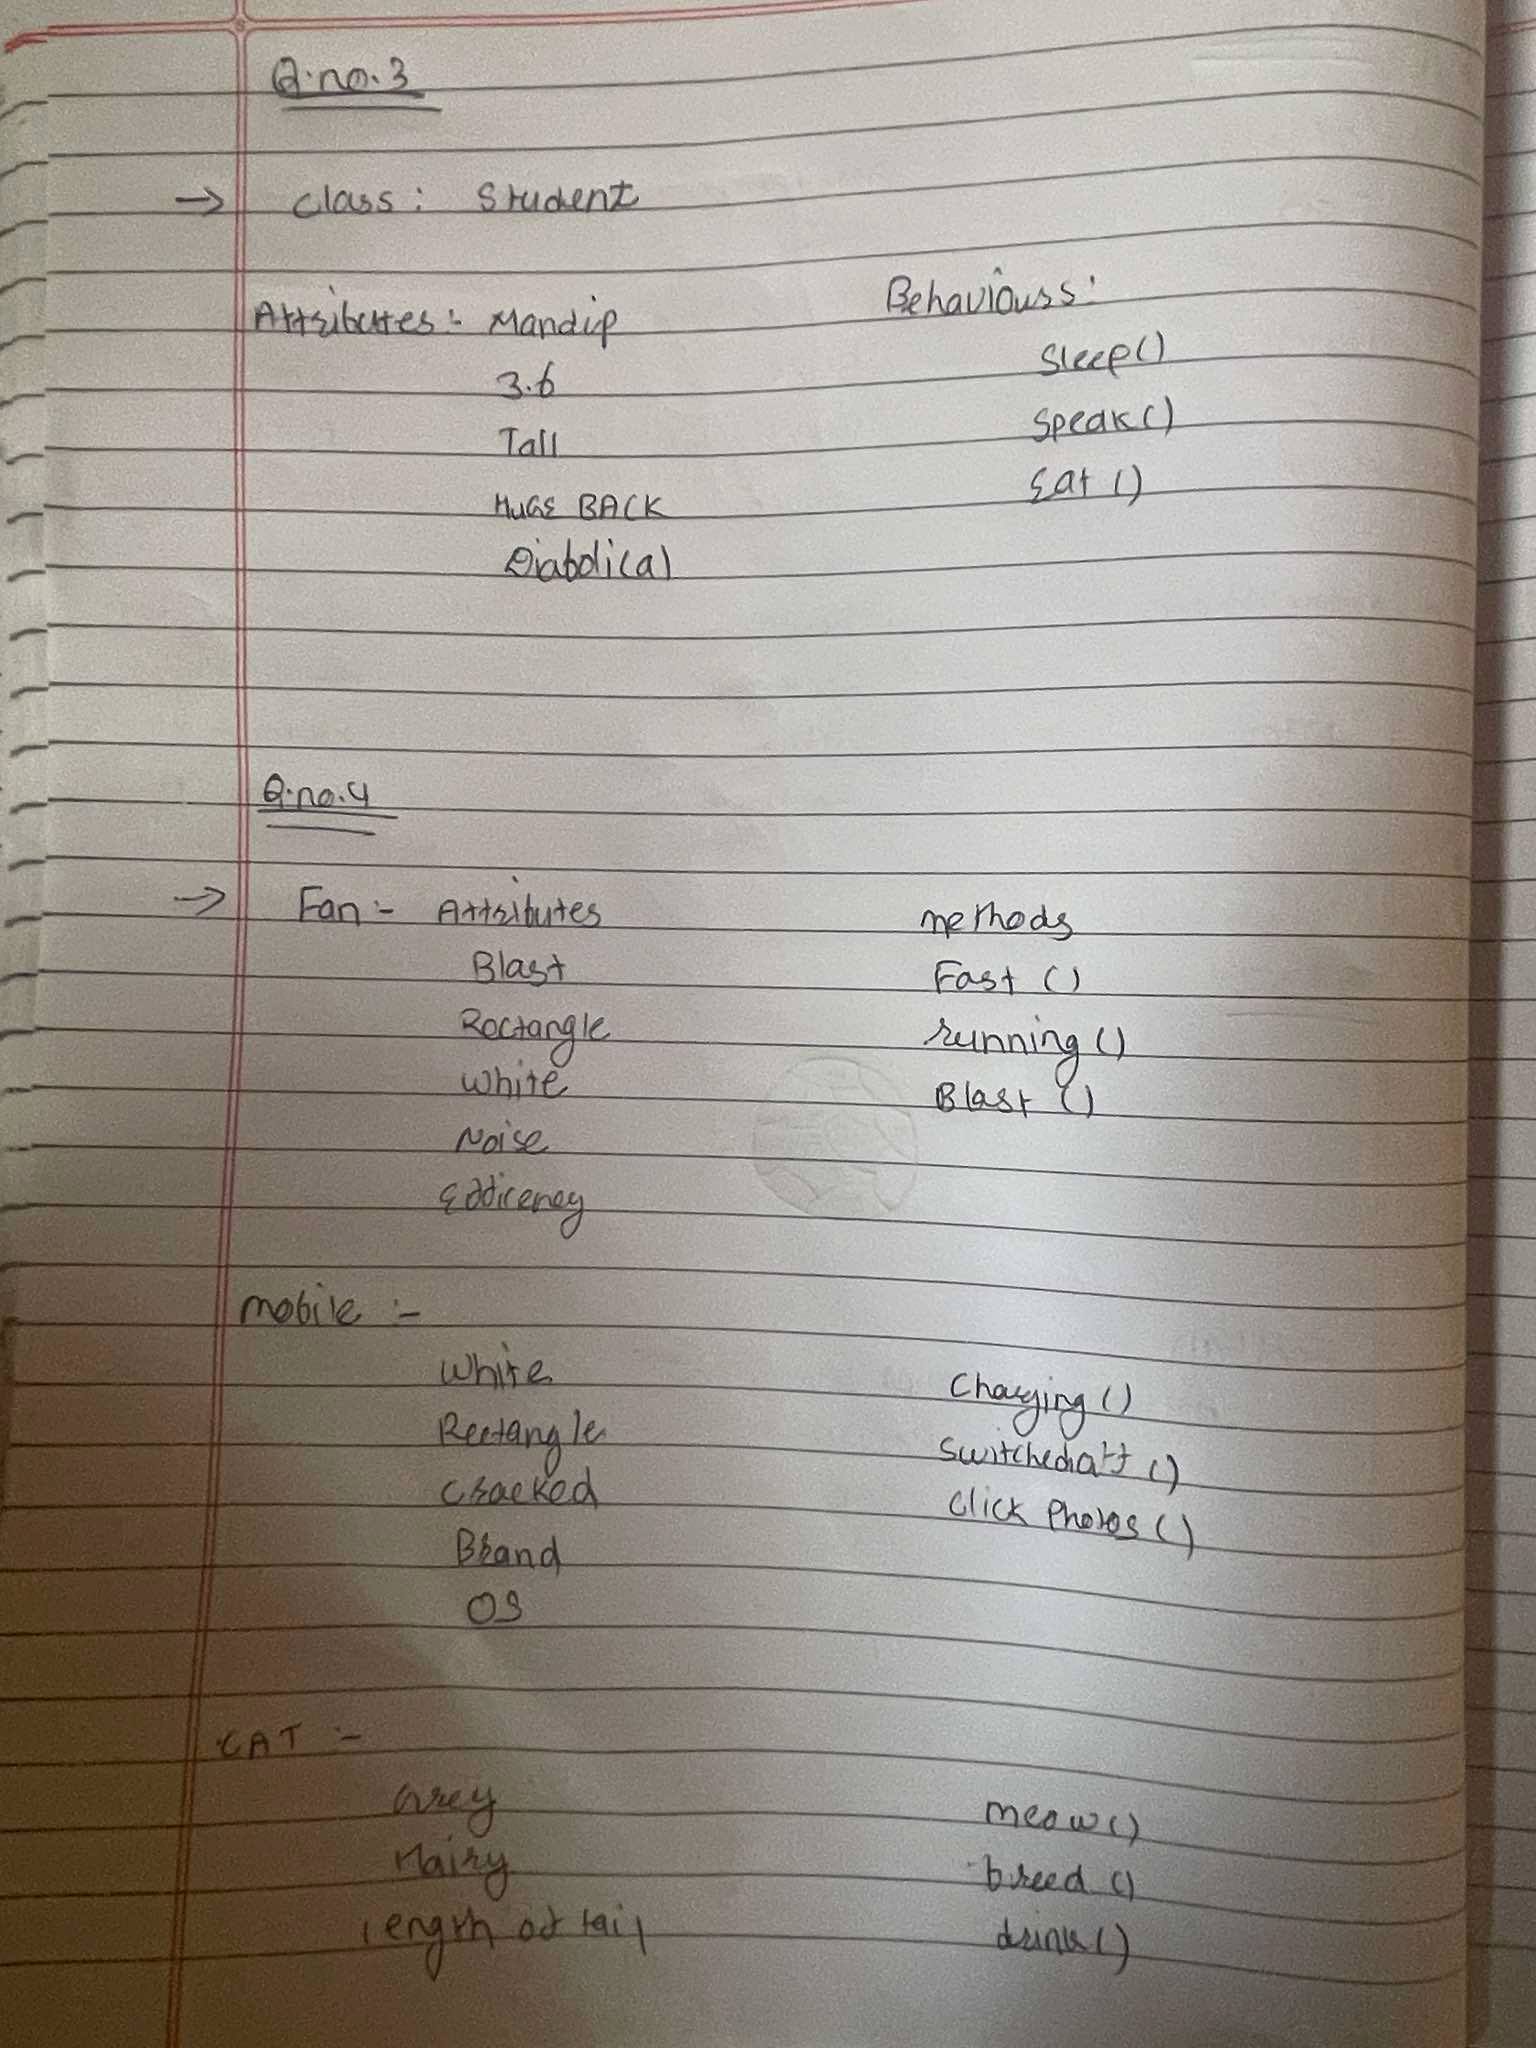 Q.no.3
→ Class: Student
Attributes:- Mandip
3.6
Tall
HUGE BACK
Diabolical
Behaviours:
Sleep()
Speak()
Eat ()
Q.no.4
→ Fan:- Attributes
Blast
Rectangle
White
Noise
methods
Fast ()
running ()
Blast ()
mobile :-
White
Rectangle
Cracked
Brand
OS
Charging ()
Switchedoff ()
Click Photos ()
CAT :-
Grey
Hairy
length of tail
meow()
breed ()
drink()